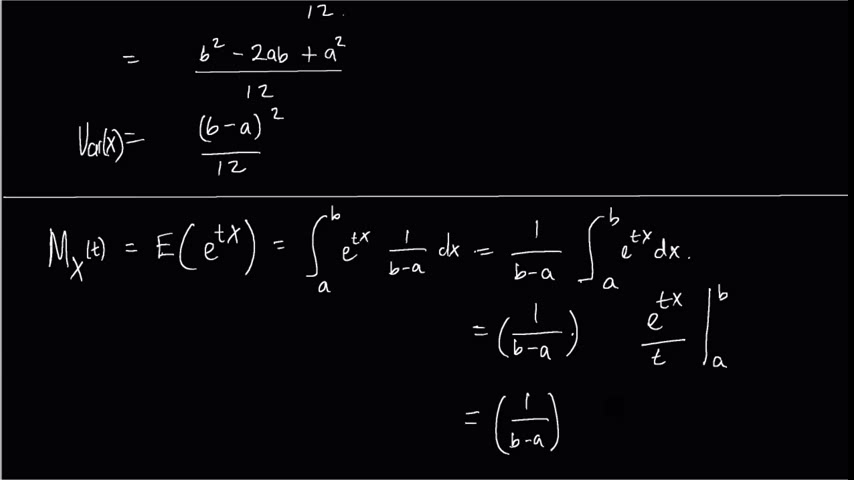 12.
= b² − 2ab + a² / 12
Var(X) = (b−a)² / 12
M_X(t) = E(e^{tX}) = ∫_a^b e^{tx} 1/(b−a) dx = 1/(b−a) ∫_a^b e^{tx} dx.
= (1/(b−a) ·) e^{tx}/t |_a^b
= (1/(b−a))